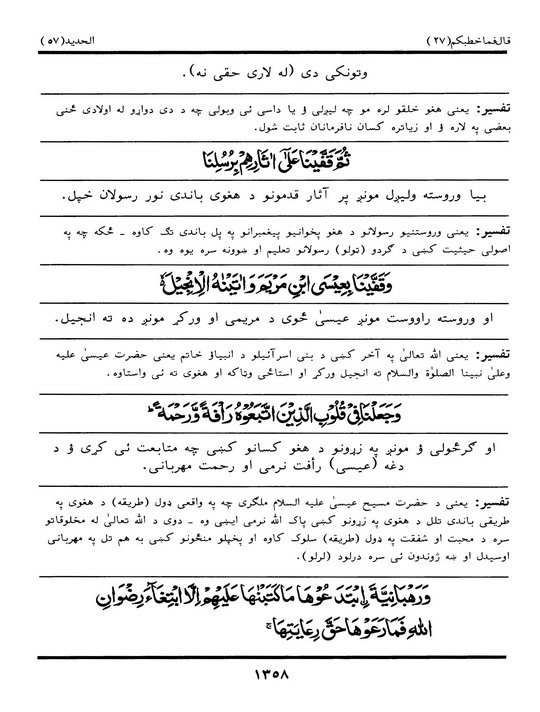 قال فما خطبكم (٢٧) الحديد (٥٧)
وتونکی دی (له لاری حقی نه).
تفسیر: یعنی هغو خلقو لره مو چه لیږلی ؤ یا داسی ئی وبولی چه د دی دواړو له اولادی ځنی
بعضی په لاره ؤ او زیاتره کسان نافرمانان ثابت شول.
ثُمَّ قَفَّيْنَا عَلٰٓى اٰثَارِهِمْ بِرُسُلِنَا
بیا وروسته ولیږل مونږ پر آثار قدمونو د هغوی باندی نور رسولان خپل.
تفسیر: یعنی وروستنیو رسولانو د هغو پخوانیو پیغمبرانو په پل باندی تگ کاوه ـ ځکه چه په
اصولی حیثیت کښی د گردو (ټولو) رسولانو تعلیم او ښوونه سره یوه وه.
وَقَفَّيْنَا بِعِيْسَى ابْنِ مَرْيَمَ وَاٰتَيْنٰهُ الْاِنْجِيْلَ ۙ
او وروسته راووست مونږ عیسیٰ ځوی د مریمی او ورکړ مونږ ده ته انجیل.
تفسیر: یعنی الله تعالیٰ په آخر کښی د بنی اسرآئیلو د انبیاؤ خاتم یعنی حضرت عیسیٰ علیه
وعلیٰ نبینا الصلوٰة والسلام ته انجیل ورکړ او استاځی وټاکه او هغوی ته ئی واستاوه.
وَجَعَلْنَا فِيْ قُلُوْبِ الَّذِيْنَ اتَّبَعُوْهُ رَاْفَةً وَّرَحْمَةً ؕ
او گرځولی ؤ مونږ په زړونو د هغو کسانو کښی چه متابعت ئی کړی ؤ د
دغه (عیسی) رأفت نرمی او رحمت مهربانی.
تفسیر: یعنی د حضرت مسیح عیسیٰ علیه السلام ملگری چه په واقعی ډول (طریقه) د هغوی په
طریقی باندی تلل د هغوی په زړونو کښی پاک الله نرمی ایښی وه ـ دوی د الله تعالیٰ له مخلوقاتو
سره د محبت او شفقت په ډول (طریقه) سلوک کاوه او پخپلو منځونو کښی به هم تل په مهربانی
اوسیدل او ښه ژوندون ئی سره درلود (لرلو).
وَرَهْبَانِيَّةَ ۨ ابْتَدَعُوْهَا مَا كَتَبْنٰهَا عَلَيْهِمْ اِلَّا ابْتِغَآءَ رِضْوَانِ
اللّٰهِ فَمَا رَعَوْهَا حَقَّ رِعَايَتِهَا ۚ
١٣٥٨